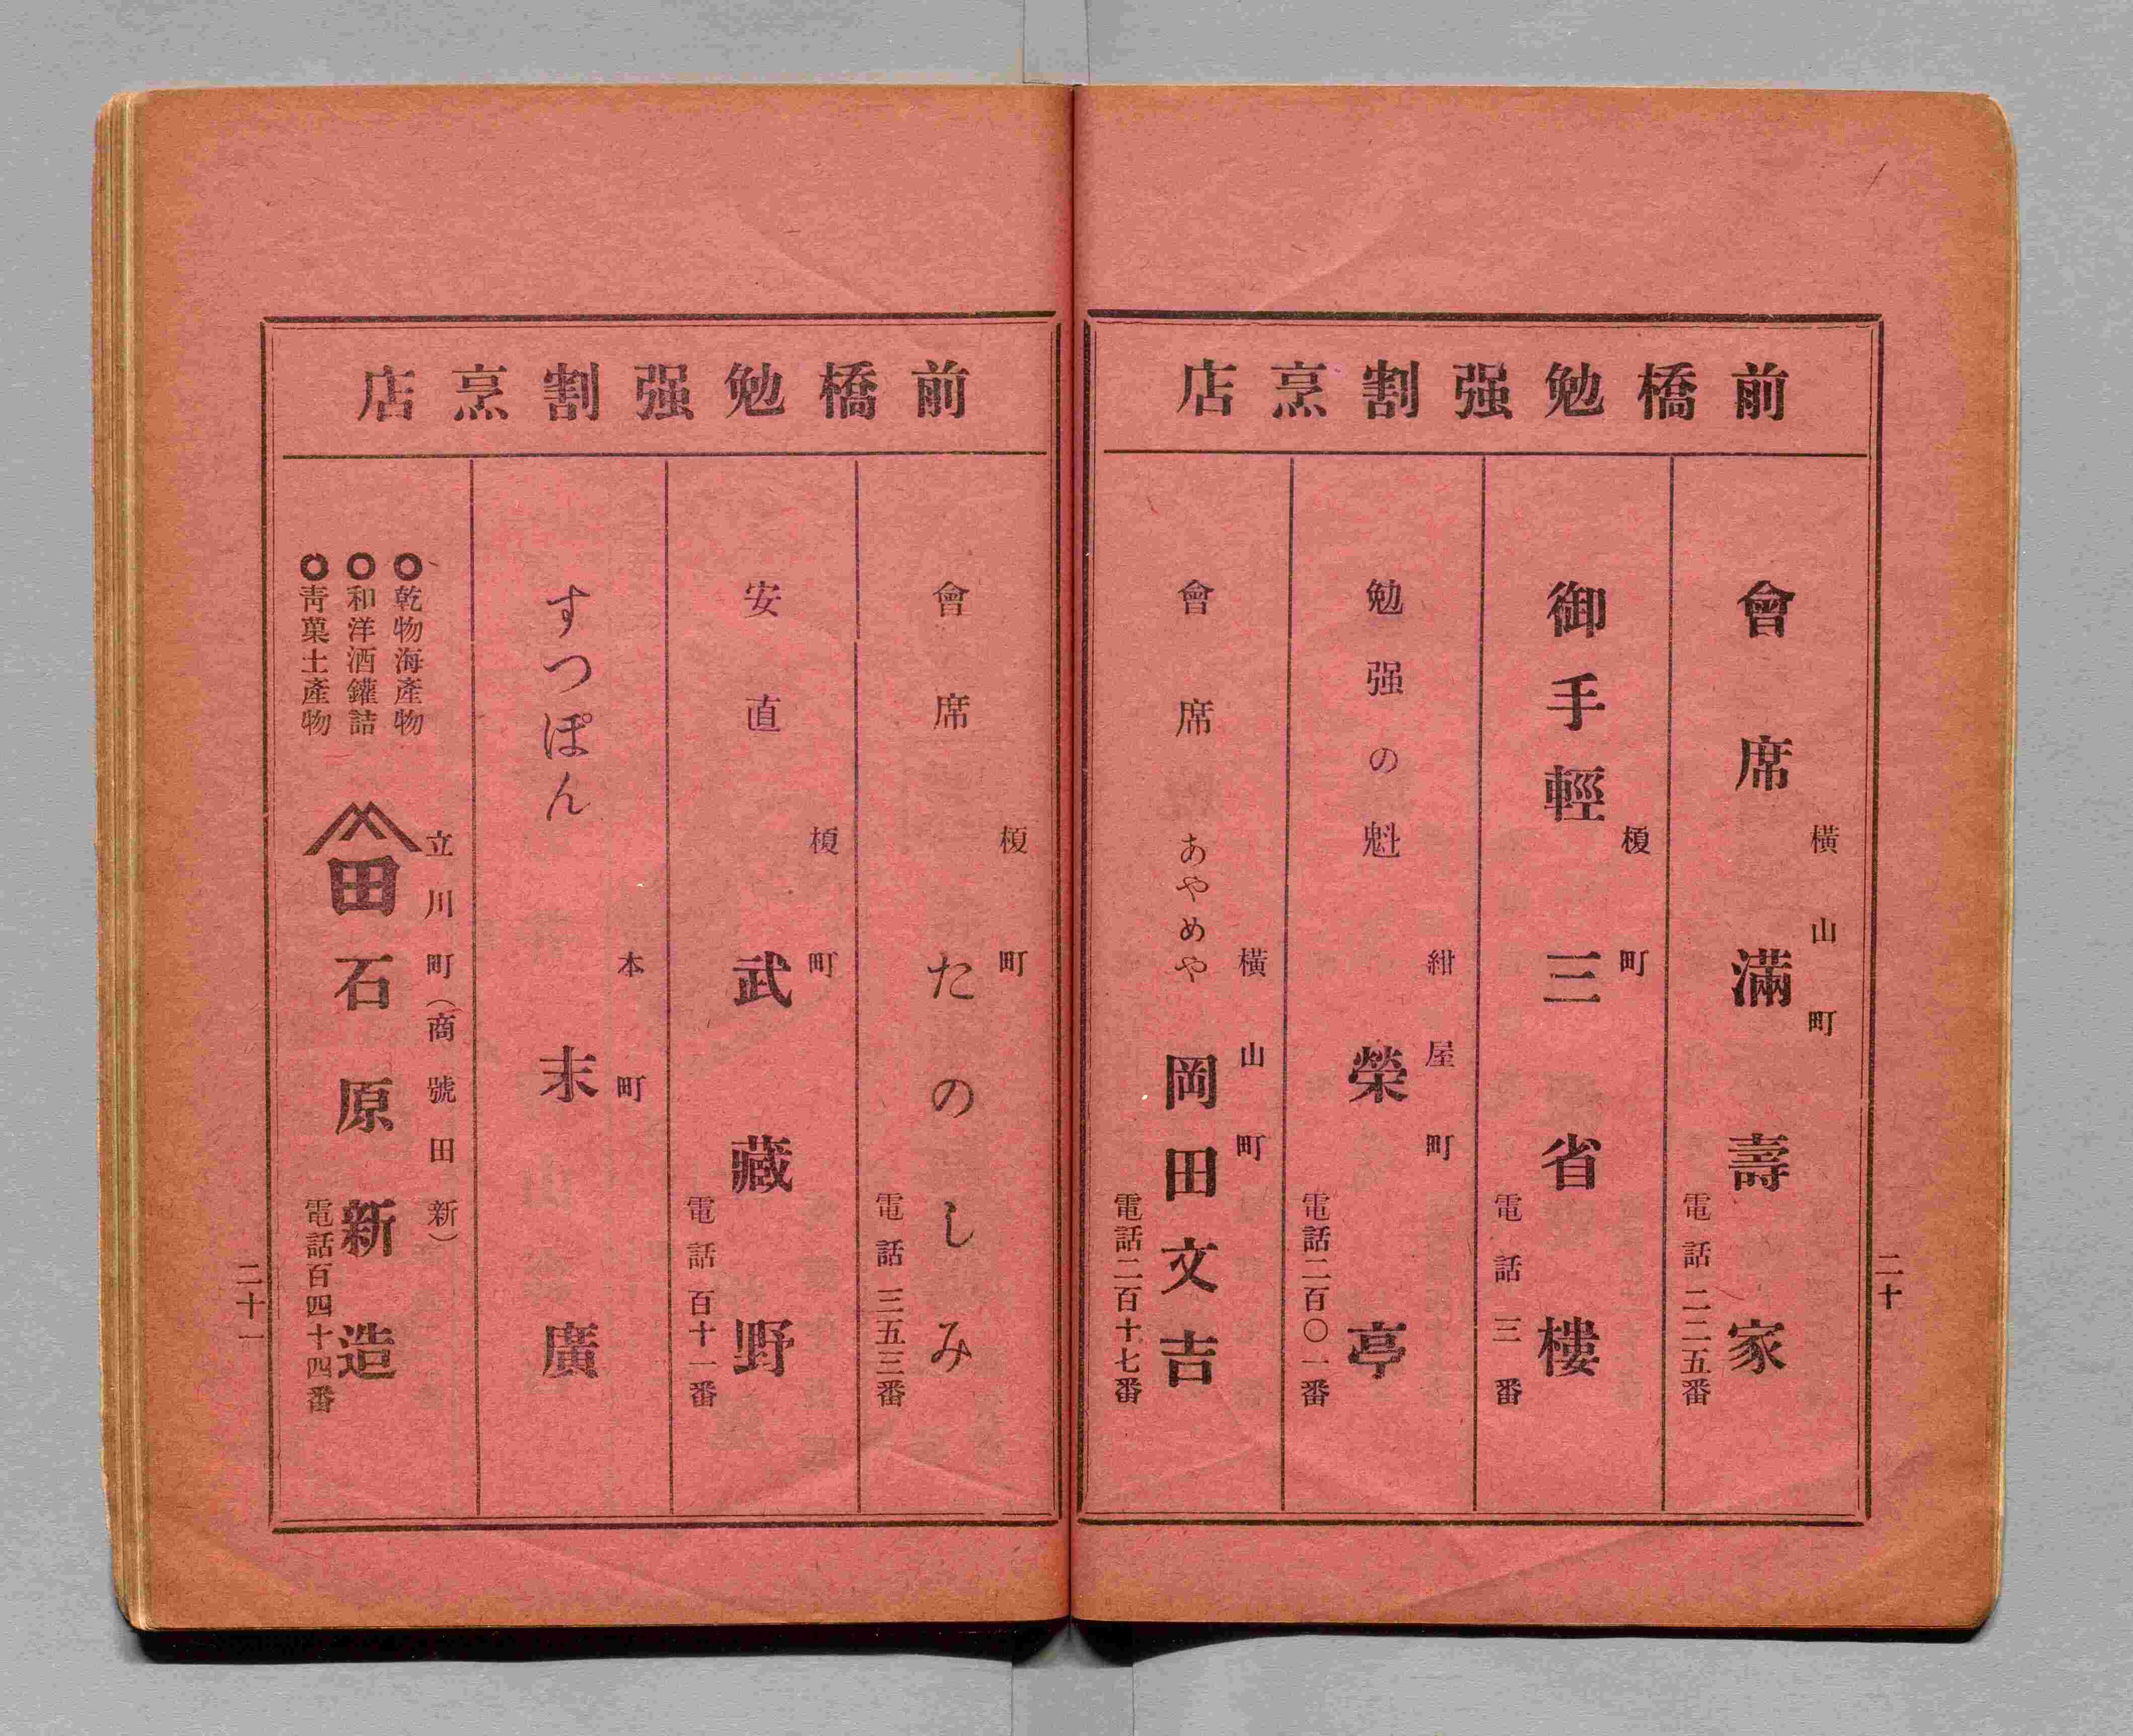 前橋勉强割烹店
橫山町
會席 滿壽家
電話二二五番
榎町
御手輕 三省樓
電話三番
紺屋町
勉强の魁 榮亭
電話二百〇一番
橫山町
會席 あやめや 岡田文吉
電話二百十七番
二十
前橋勉强割烹店
榎町
會席 たのしみ
電話三五三番
榎町
安直 武藏野
電話百十一番
本町
すつぽん 末廣
立川町(商號田新)
◎乾物海產物
◎和洋酒鑵詰
◎靑菓土產物
田 石原新造
電話百四十四番
二十一